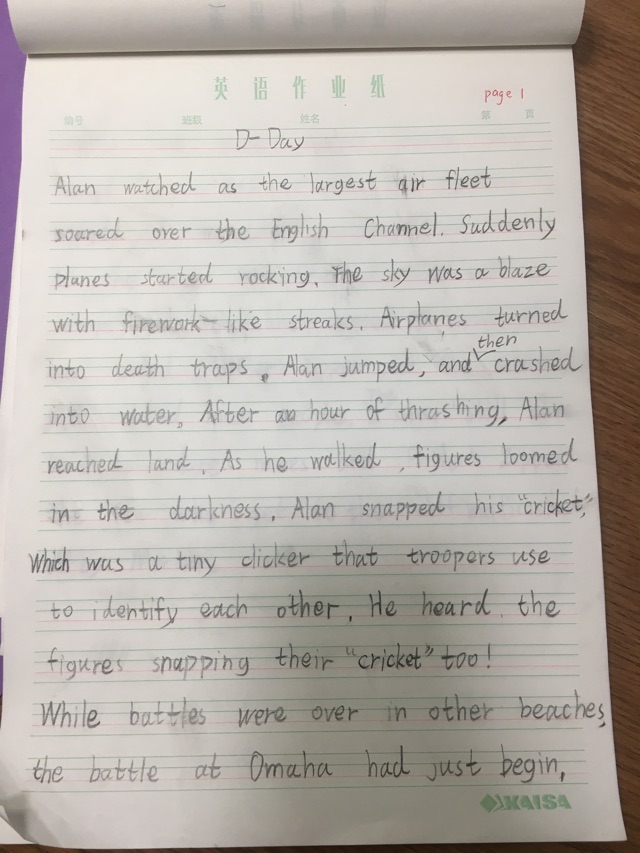 英语作业纸
page 1
编号 班级 姓名 第 页
D-Day
Alan watched as the largest air fleet
soared over the English Channel. Suddenly
planes started rocking. The sky was a blaze
with firework-like streaks. Airplanes turned
into death traps. Alan jumped, and then crashed
into water. After an hour of thrashing, Alan
reached land. As he walked, figures loomed
in the darkness. Alan snapped his "cricket,"
Which was a tiny clicker that troopers use
to identify each other. He heard the
figures snapping their "cricket" too!
While battles were over in other beaches,
the battle at Omaha had just begin,
KAISA